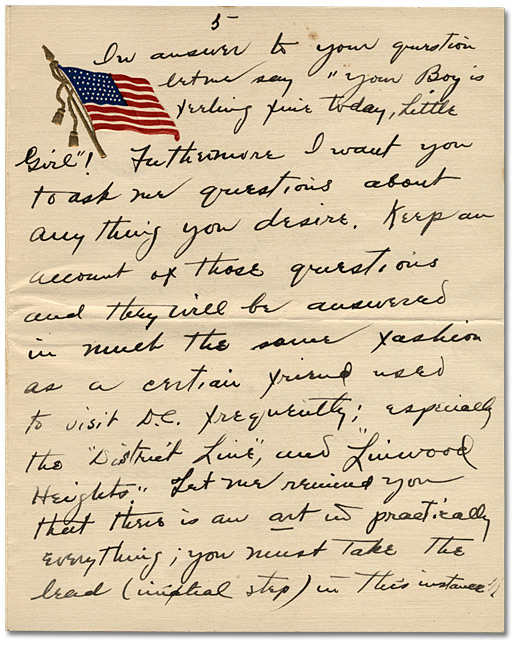 5
In answer to your question
let me say "Your Boy is
feeling fine today, Little
Girl"! Futhermore I want you
to ask me questions about
anything you desire. Keep an
account of those questions
and they will be answered
in much the same fashion
as a certian friend used
to visit D.C. frequently; especially
the "District Line", and "Linwood
Heights." Let me remind you
that there is an art in practically
everything; you must take the
lead (initial step) in this instance!!